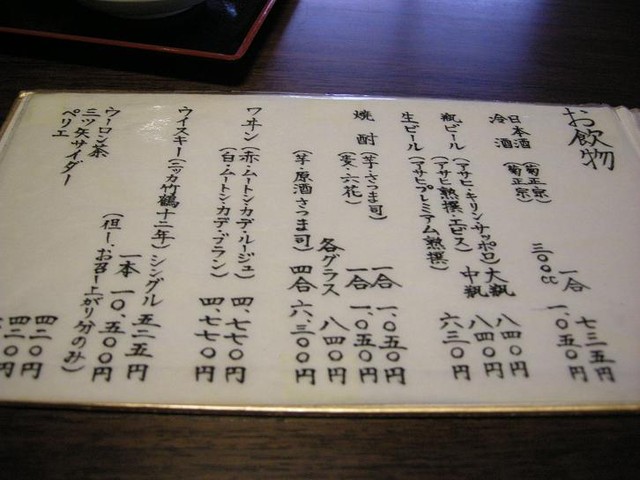 お飲物
日本酒 (菊正宗) 一合 七三五円
冷酒 (菊正宗) 三〇〇cc 一、〇五〇円
瓶ビール (アサヒ・キリン・サッポロ) 大瓶 八四〇円
(アサヒ熟撰・エビス) 中瓶 八四〇円
生ビール (アサヒプレミアム熟撰) 六三〇円
焼酎 (芋・さつま司) 一合 一、〇五〇円
(麦・六花) 一合 一、〇五〇円
各グラス 八四〇円
(芋・原酒さつま司) 四合 六、三〇〇円
ワヰン (赤・ムートン・カデ・ルージュ) 四、七七〇円
(白・ムートン・カデ・ブラン) 四、七七〇円
ウイスキー (ニッカ竹鶴十二年) シングル 五二五円
一本 一〇、五〇〇円
(但し、お召し上がり分のみ)
ウーロン茶 四二〇円
三ツ矢サイダー 四二〇円
ペリエ